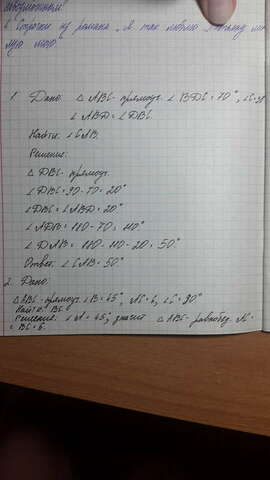 6. Строчки из романа "Я так люблю
мую твою.
1. Дано: △ ABC - прямоуг. ∠ BDC = 70°, ∠C=90
∠ ABD = ∠ DBC.
Найти: ∠ CAB.
Решение:
△ DBC - прямоуг.
∠ DBC = 90 - 70 = 20°
∠ DBC = ∠ ABD = 20°
∠ ADB = 180 - 70 = 110°
∠ DAB = 180 - 110 - 20 = 50°
Ответ: ∠ CAB = 50°
2. Дано:
△ ABC - прямоуг. ∠ B = 45°, AC = 6, ∠ C = 90°
Найти: BC
Решение: ∠ A = 45°, значит △ ABC - равнобед. AC =
= BC = 6.